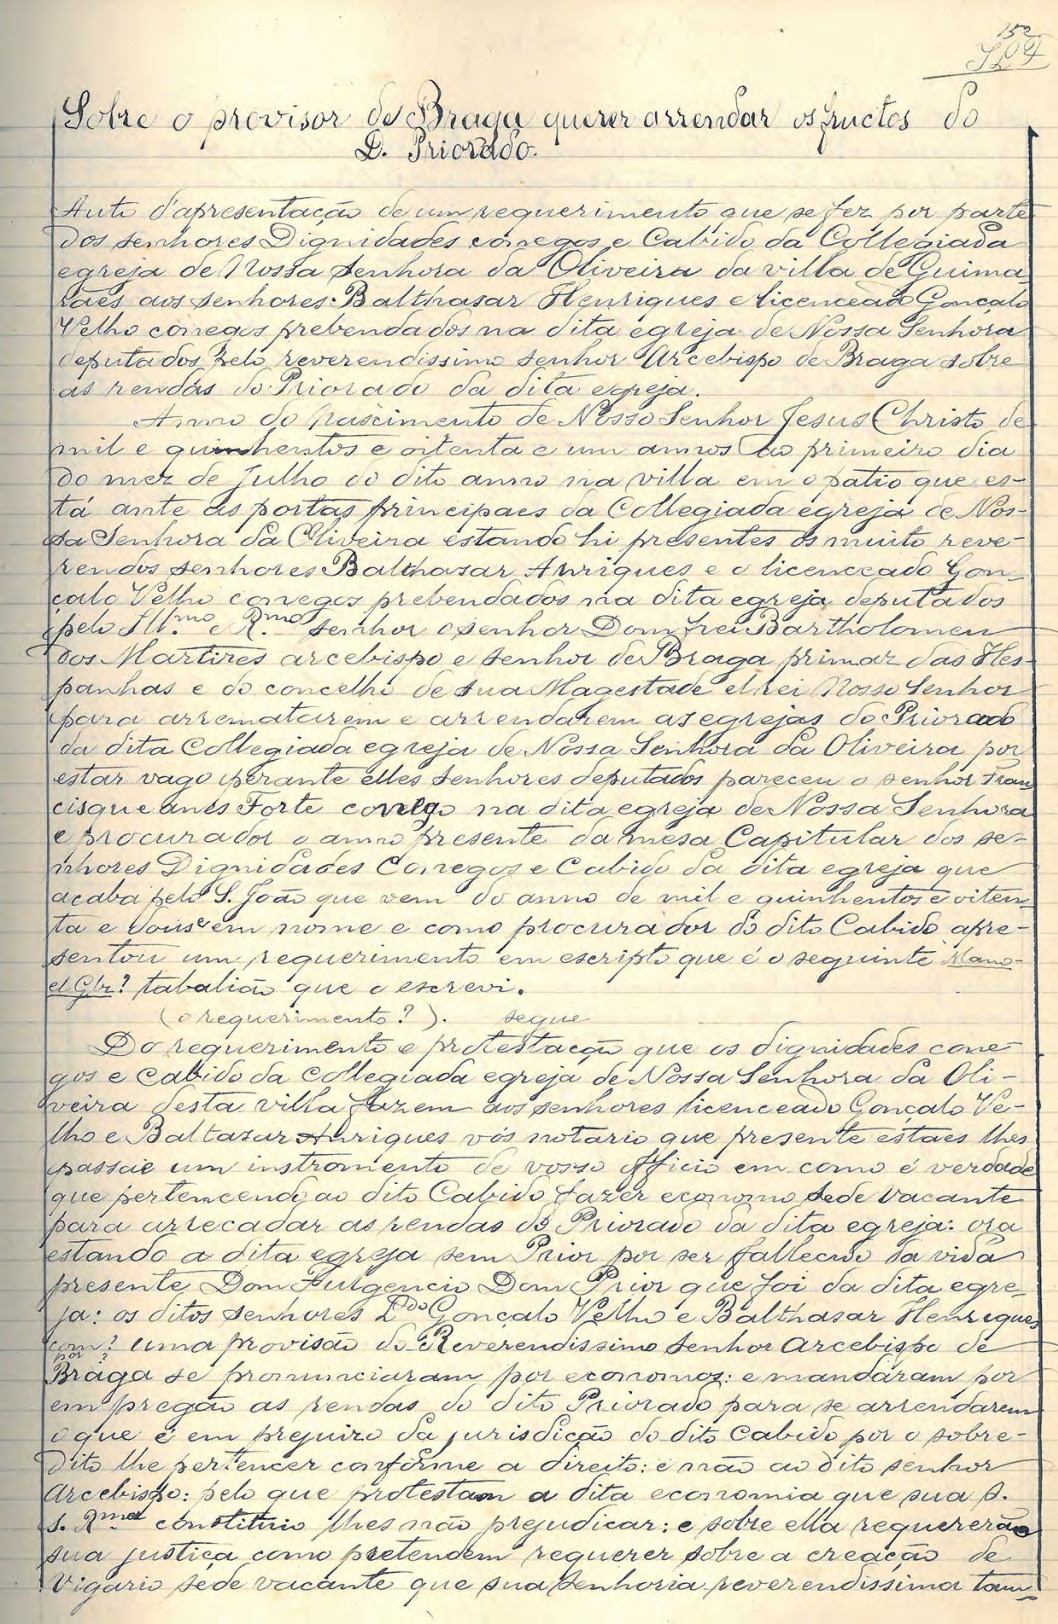 152
Sobre o provisor de Braga querer arrendar os fructos do
D. Priorado.
Auto d'apresentação de um requerimento que se fez por parte
dos senhores Dignidades conegos e Cabido da Collegiada
egreja de Nossa Senhora da Oliveira da villa de Guima
rães aos senhores: Balthasar Henriques e licenceado Gonçalo
Velho conegos prebendados na dita egreja de Nossa Senhora
deputados pelo reverendissimo senhor Arcebispo de Braga sobre
as rendas do Priorado da dita egreja.
Anno do nascimento de Nosso Senhor Jesus Christo de
mil e quinhentos e oitenta e um annos ao primeiro dia
do mez de Julho do dito anno na villa em o patio que es-
tá ante as portas principaes da Collegiada egreja de Nos-
sa Senhora da Oliveira estando hi presentes os muito reve-
rendos senhores Balthasar Anriques e o licenceado Gon-
çalo Velho conegos prebendados na dita egreja deputados
pelo Ill.mo e R.mo senhor o senhor Dom frei Bartholomeu
dos Martires arcebispo e senhor de Braga primaz das Hes-
panhas e do concelho de sua Magestade el rei Nosso Senhor
para arrematarem e arrendarem as egrejas do Priorado
da dita Collegiada egreja de Nossa Senhora da Oliveira por
estar vago perante elles senhores deputados pareceu o senhor Fran
cisque anes Forte conego na dita egreja de Nossa Senhora
e procurador o anno presente da mesa Capitular dos se-
nhores Dignidades Conegos e Cabido da dita egreja que
acaba pelo S. João que vem do anno de mil e quinhentos e oiten-
ta e dous e em nome e como procurador do dito Cabido apre-
sentou um requerimento em escripto que é o seguinte Mano-
el Glz? tabalião que o escrevi.
(o requerimento?). segue
Do requerimento e protestação que os dignidades cone-
gos e Cabido da Collegiada egreja de Nossa Senhora da Oli-
veira desta villa fazem aos senhores licenceado Gonçalo Ve-
lho e Baltazar Anriques vós notario que presente estaes lhes
passae um instromento de vosso officio em como é verdade
que pertencendo ao dito Cabido fazer economo sede vacante
para arrecadar as rendas do Priorado da dita egreja: ora
estando a dita egreja sem Prior por ser fallecido da vida
presente Dom Fulgencio Dom Prior que foi da dita egre-
ja: os ditos senhores L.do Gonçalo Velho e Balthasar Henriques
com? uma provisão do Reverendissimo senhor Arcebispo de
por?
Braga se pronunciaram por economos: e mandaram por
em pregão as rendas do dito Priorado para se arrendarem
o que é em prejuizo da jurisdição do dito Cabido por o sobre-
dito lhe pertencer conforme a direito: e não ao dito senhor
Arcebispo: pelo que protestam a dita economia que sua S.
S. R.ma constituio lhes não prejudicar: e sobre ella requererão
sua justiça como pretendem requerer sobre a creação de
Vigario sede vacante que sua senhoria reverendissima tam-